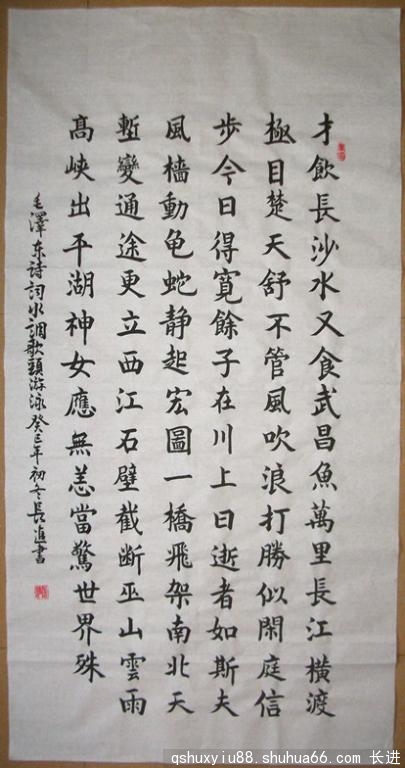 才飲長沙水又食武昌魚萬里長江橫渡
極目楚天舒不管風吹浪打勝似閑庭信
步今日得寬餘子在川上曰逝者如斯夫
風檣動龟蛇静起宏圖一橋飛架南北天
塹變通途更立西江石壁截断巫山雲雨
髙峽出平湖神女應無恙當驚世界殊
毛澤东诗词水調歌頭游泳癸巳年初冬長進書
qshuxyiu88.shuhua66.com 长进